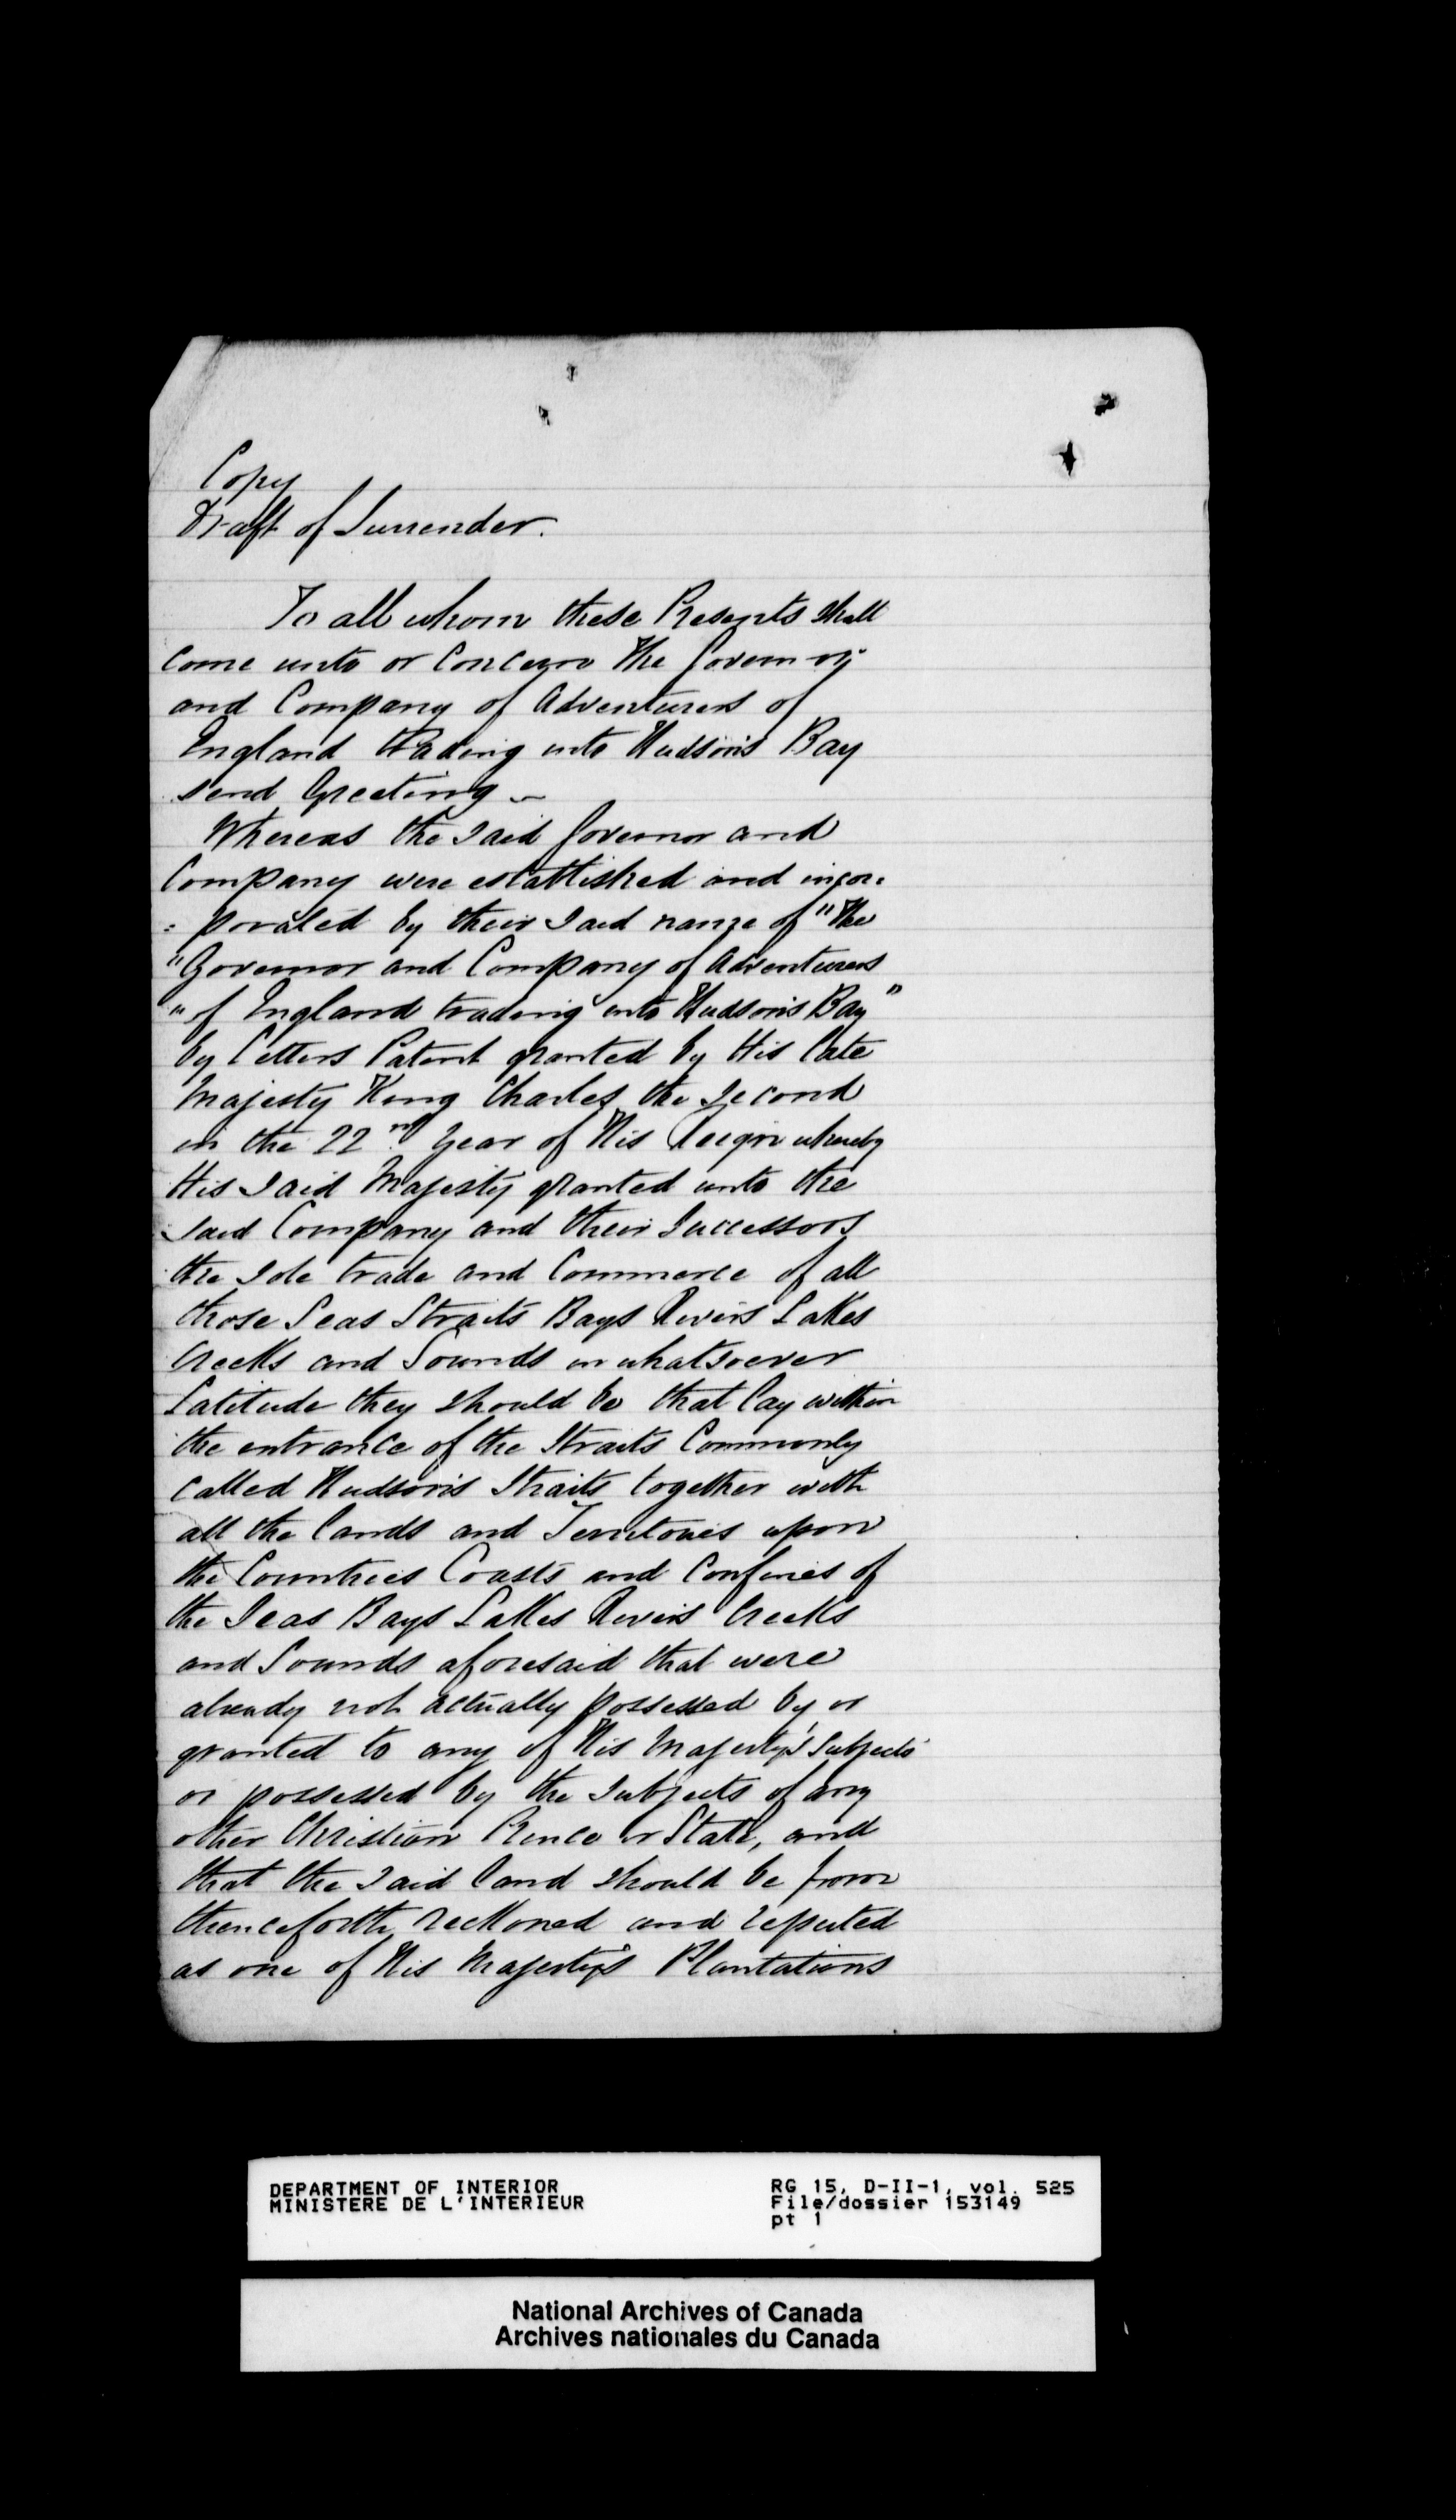 Copy
Draft of Surrender.
To all whom these Presents shall
come unto or concern The Governor
and Company of Adventurers of
England trading into Hudson's Bay
send Greeting –
Whereas the said Governor and
Company were established and incor:
: porated by their said name of "The
"Governor and Company of Adventurers
"of England trading into Hudson's Bay"
by Letters Patent granted by His late
Majesty King Charles the Second
in the 22nd year of His Reign whereby
His said Majesty granted unto the
said Company and their Successors
the sole trade and Commerce of all
those Seas Straits Bays Rivers Lakes
Creeks and Sounds in whatsoever
Latitude they should be that lay within
the entrance of the Straits Commonly
called Hudson's Straits together with
all the lands and Territories upon
the Countries Coasts and Confines of
the Seas Bays Lakes Rivers Creeks
and Sounds aforesaid that were
already not actually possessed by or
granted to any of His Majesty's Subjects
or possessed by the subjects of any
other Christian Prince or State, and
that the said land should be from
thenceforth reckoned and reputed
as one of His Majesty's Plantations
DEPARTMENT OF INTERIOR
MINISTERE DE L'INTERIEUR
RG 15, D-II-1, vol. 525
File/dossier 153149
pt 1
National Archives of Canada
Archives nationales du Canada